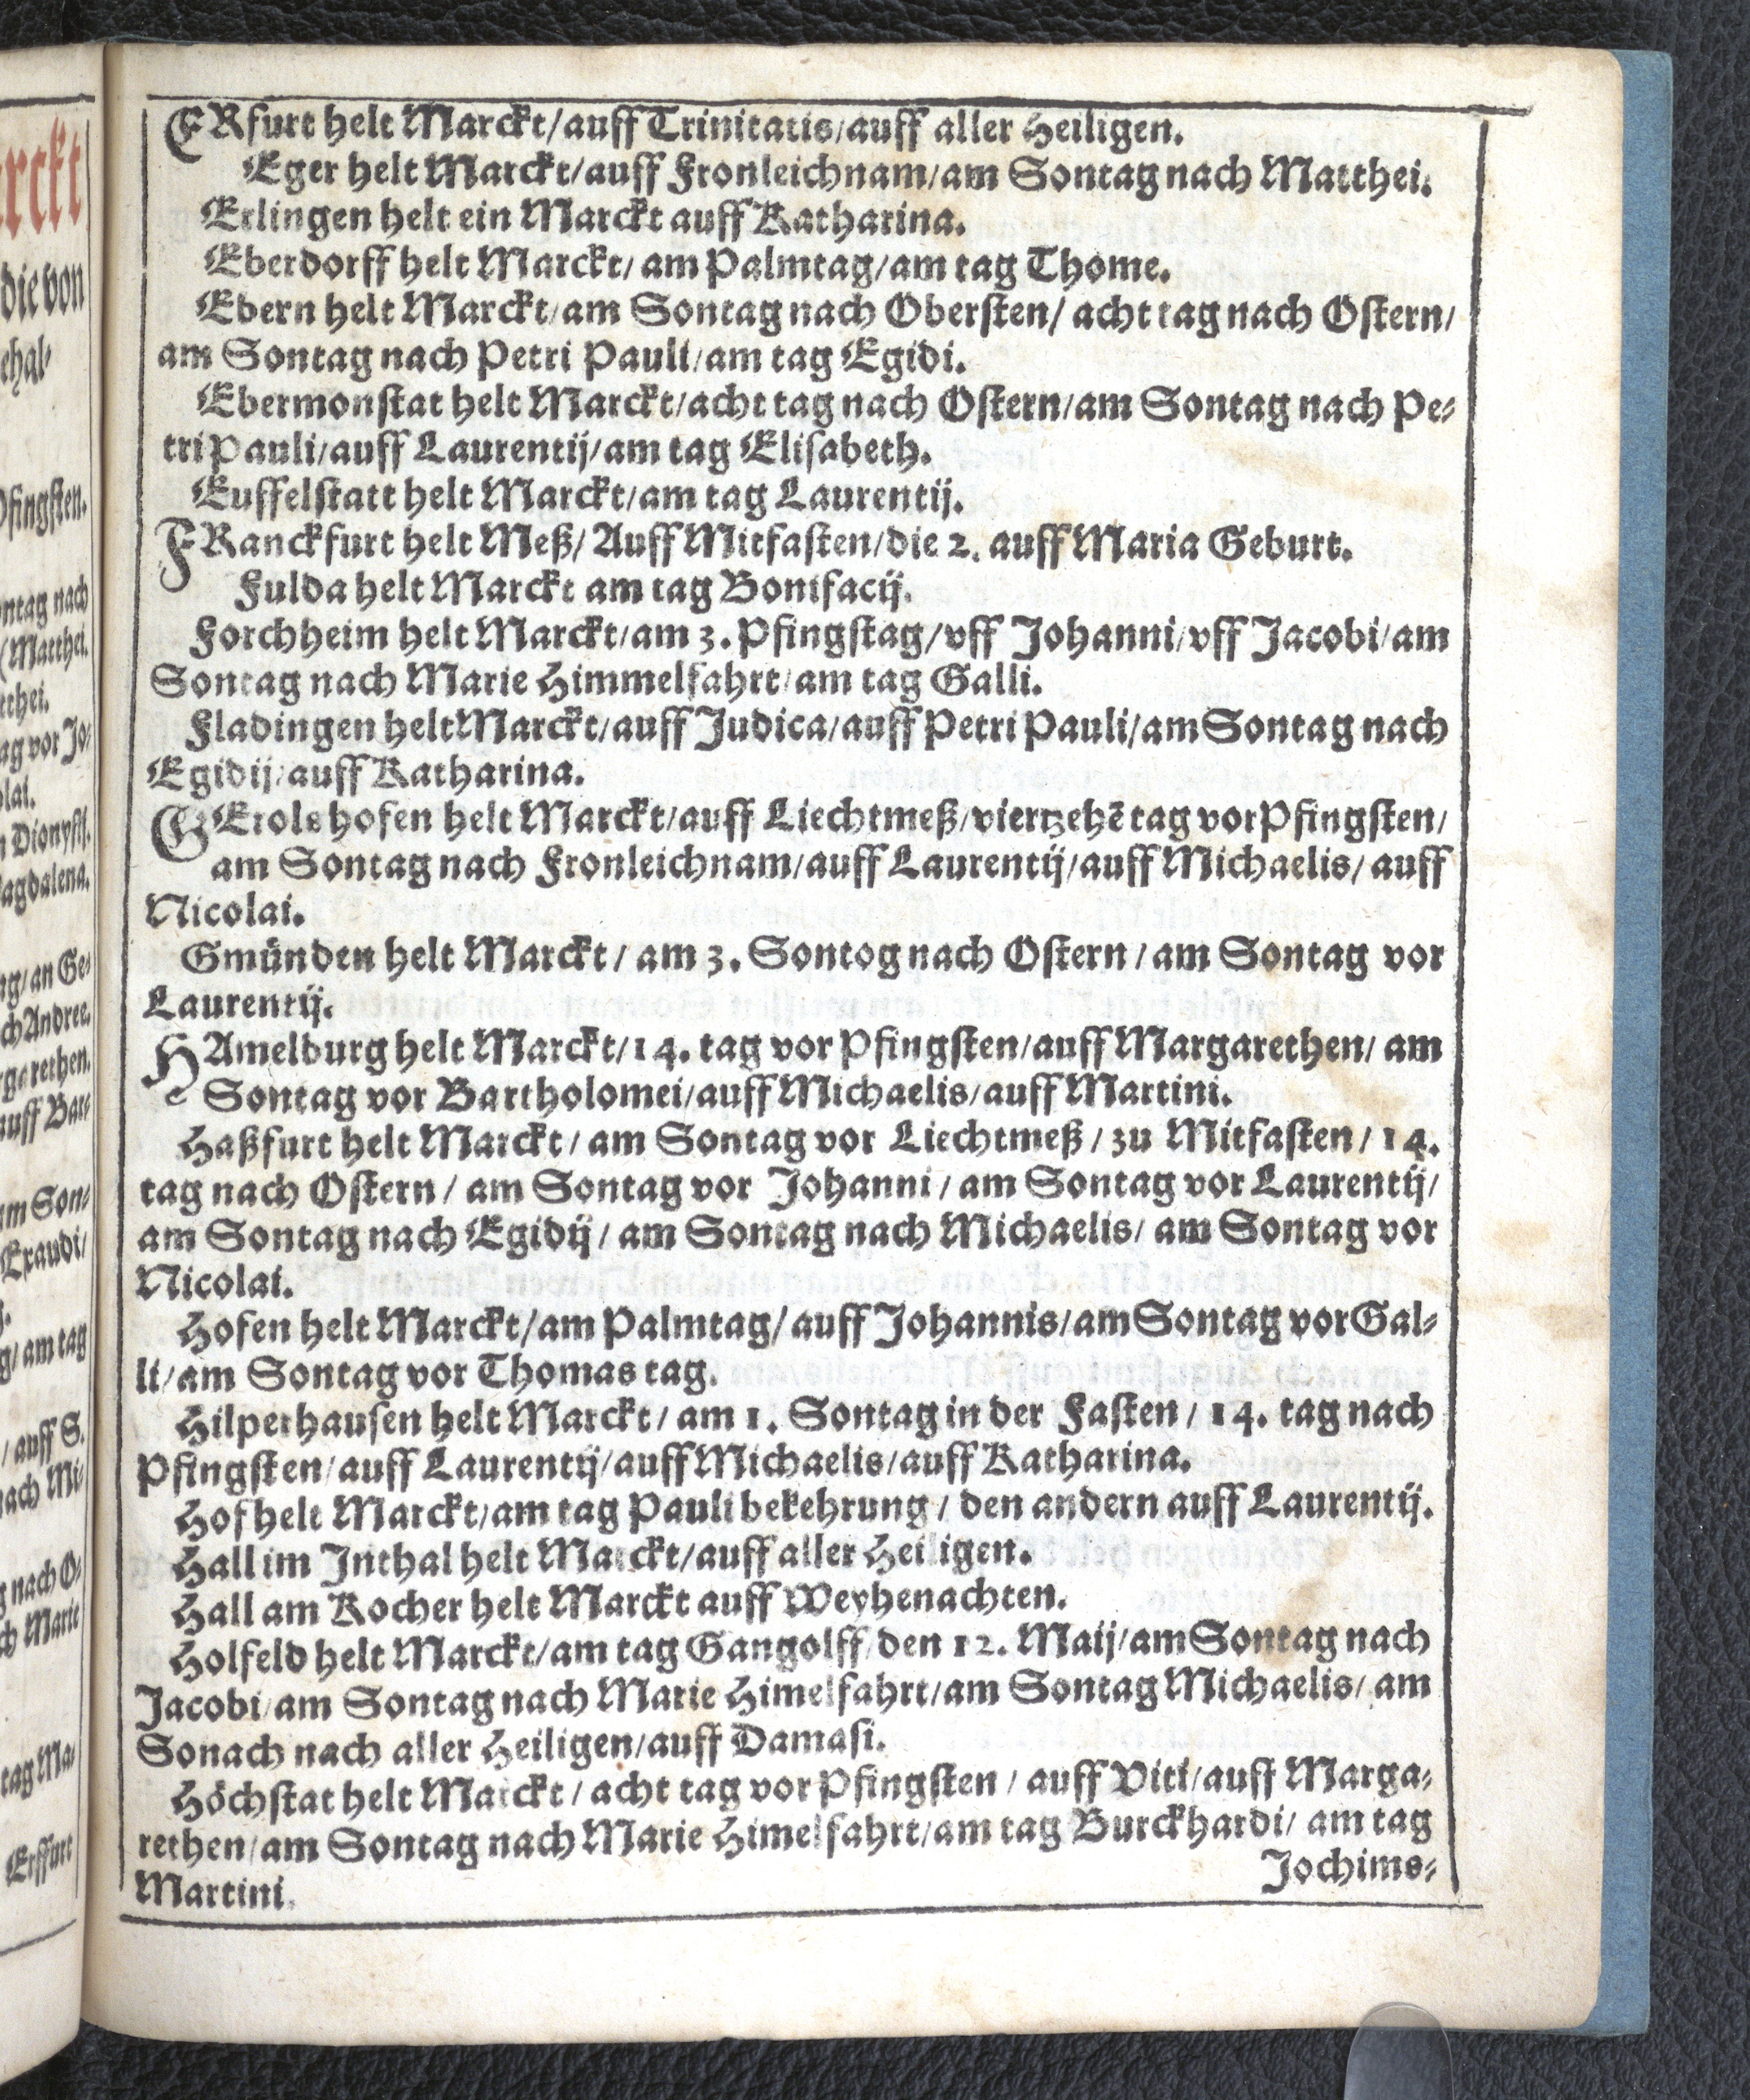 ERfurt helt Marckt/auff Trinitatis/auff aller Heiligen.
Eger helt Marckt/auff Fronleichnam/am Sontag nach Matthei.
Erlingen helt ein Marckt auff Katharina.
Eberdorff helt Marckt/ am Palmtag/am tag Thome.
Ebern helt Marckt/am Sontag nach Obersten/ acht tag nach Ostern/
am Sontag nach Petri Pauli/am tag Egidi.
Ebermonstat helt Marckt/acht tag nach Ostern/am Sontag nach Pe-
tri Pauli/auff Laurentij/am tag Elisabeth.
Euffelstatt helt Marckt/am tag Laurentij.
FRanckfurt helt Meß/ Auff Mitfasten/die 2. auff Maria Geburt.
Fulda helt Marckt am tag Bonifacij.
Forchheim helt Marckt/am 3. Pfingstag/vff Johanni/vff Jacobi/am
Sontag nach Marie Himmelfahrt/am tag Galli.
Fladingen helt Marckt/auff Judica/auff Petri Pauli/am Sontag nach
Egidij/auff Katharina.
GErolshofen helt Marckt/auff Liechtmeß/viertzehē tag vor Pfingsten/
am Sontag nach Fronleichnam/auff Laurentij/auff Michaelis/ auff
Nicolai.
Gmünden helt Marckt/ am 3. Sontog nach Ostern/ am Sontag vor
Laurentij.
HAmelburg helt Marckt/14. tag vor Pfingsten/auff Margarethen/ am
Sontag vor Bartholomei/auff Michaelis/auff Martini.
Haßfurt helt Marckt/ am Sontag vor Liechtmeß/ zu Mitfasten/ 14.
tag nach Ostern/ am Sontag vor Johanni/ am Sontag vor Laurentij/
am Sontag nach Egidij/ am Sontag nach Michaelis/ am Sontag vor
Nicolai.
Hofen helt Marckt/am Palmtag/ auff Johannis/am Sontag vor Gal-
li/am Sontag vor Thomas tag.
Hilperhausen helt Marckt/ am 1. Sontag in der Fasten/ 14. tag nach
Pfingsten/auff Laurentij/auff Michaelis/auff Katharina.
Hof helt Marckt/am tag Pauli bekehrung/ den andern auff Laurentij.
Hall im Inthal helt Marckt/auff aller Heiligen.
Hall am Kocher helt Marckt auff Weyhenachten.
Holfeld helt Marckt/am tag Gangolff/den 12. Maij/am Sontag nach
Jacobi/am Sontag nach Marie Himelfahrt/am Sontag Michaelis/ am
Sonach nach aller Heiligen/auff Damasi.
Höchstat helt Marckt/ acht tag vor Pfingsten/ auff Viti/auff Marga-
rethen/am Sontag nach Marie Himelfahrt/am tag Burckhardi/ am tag
Martini.
Jochims-